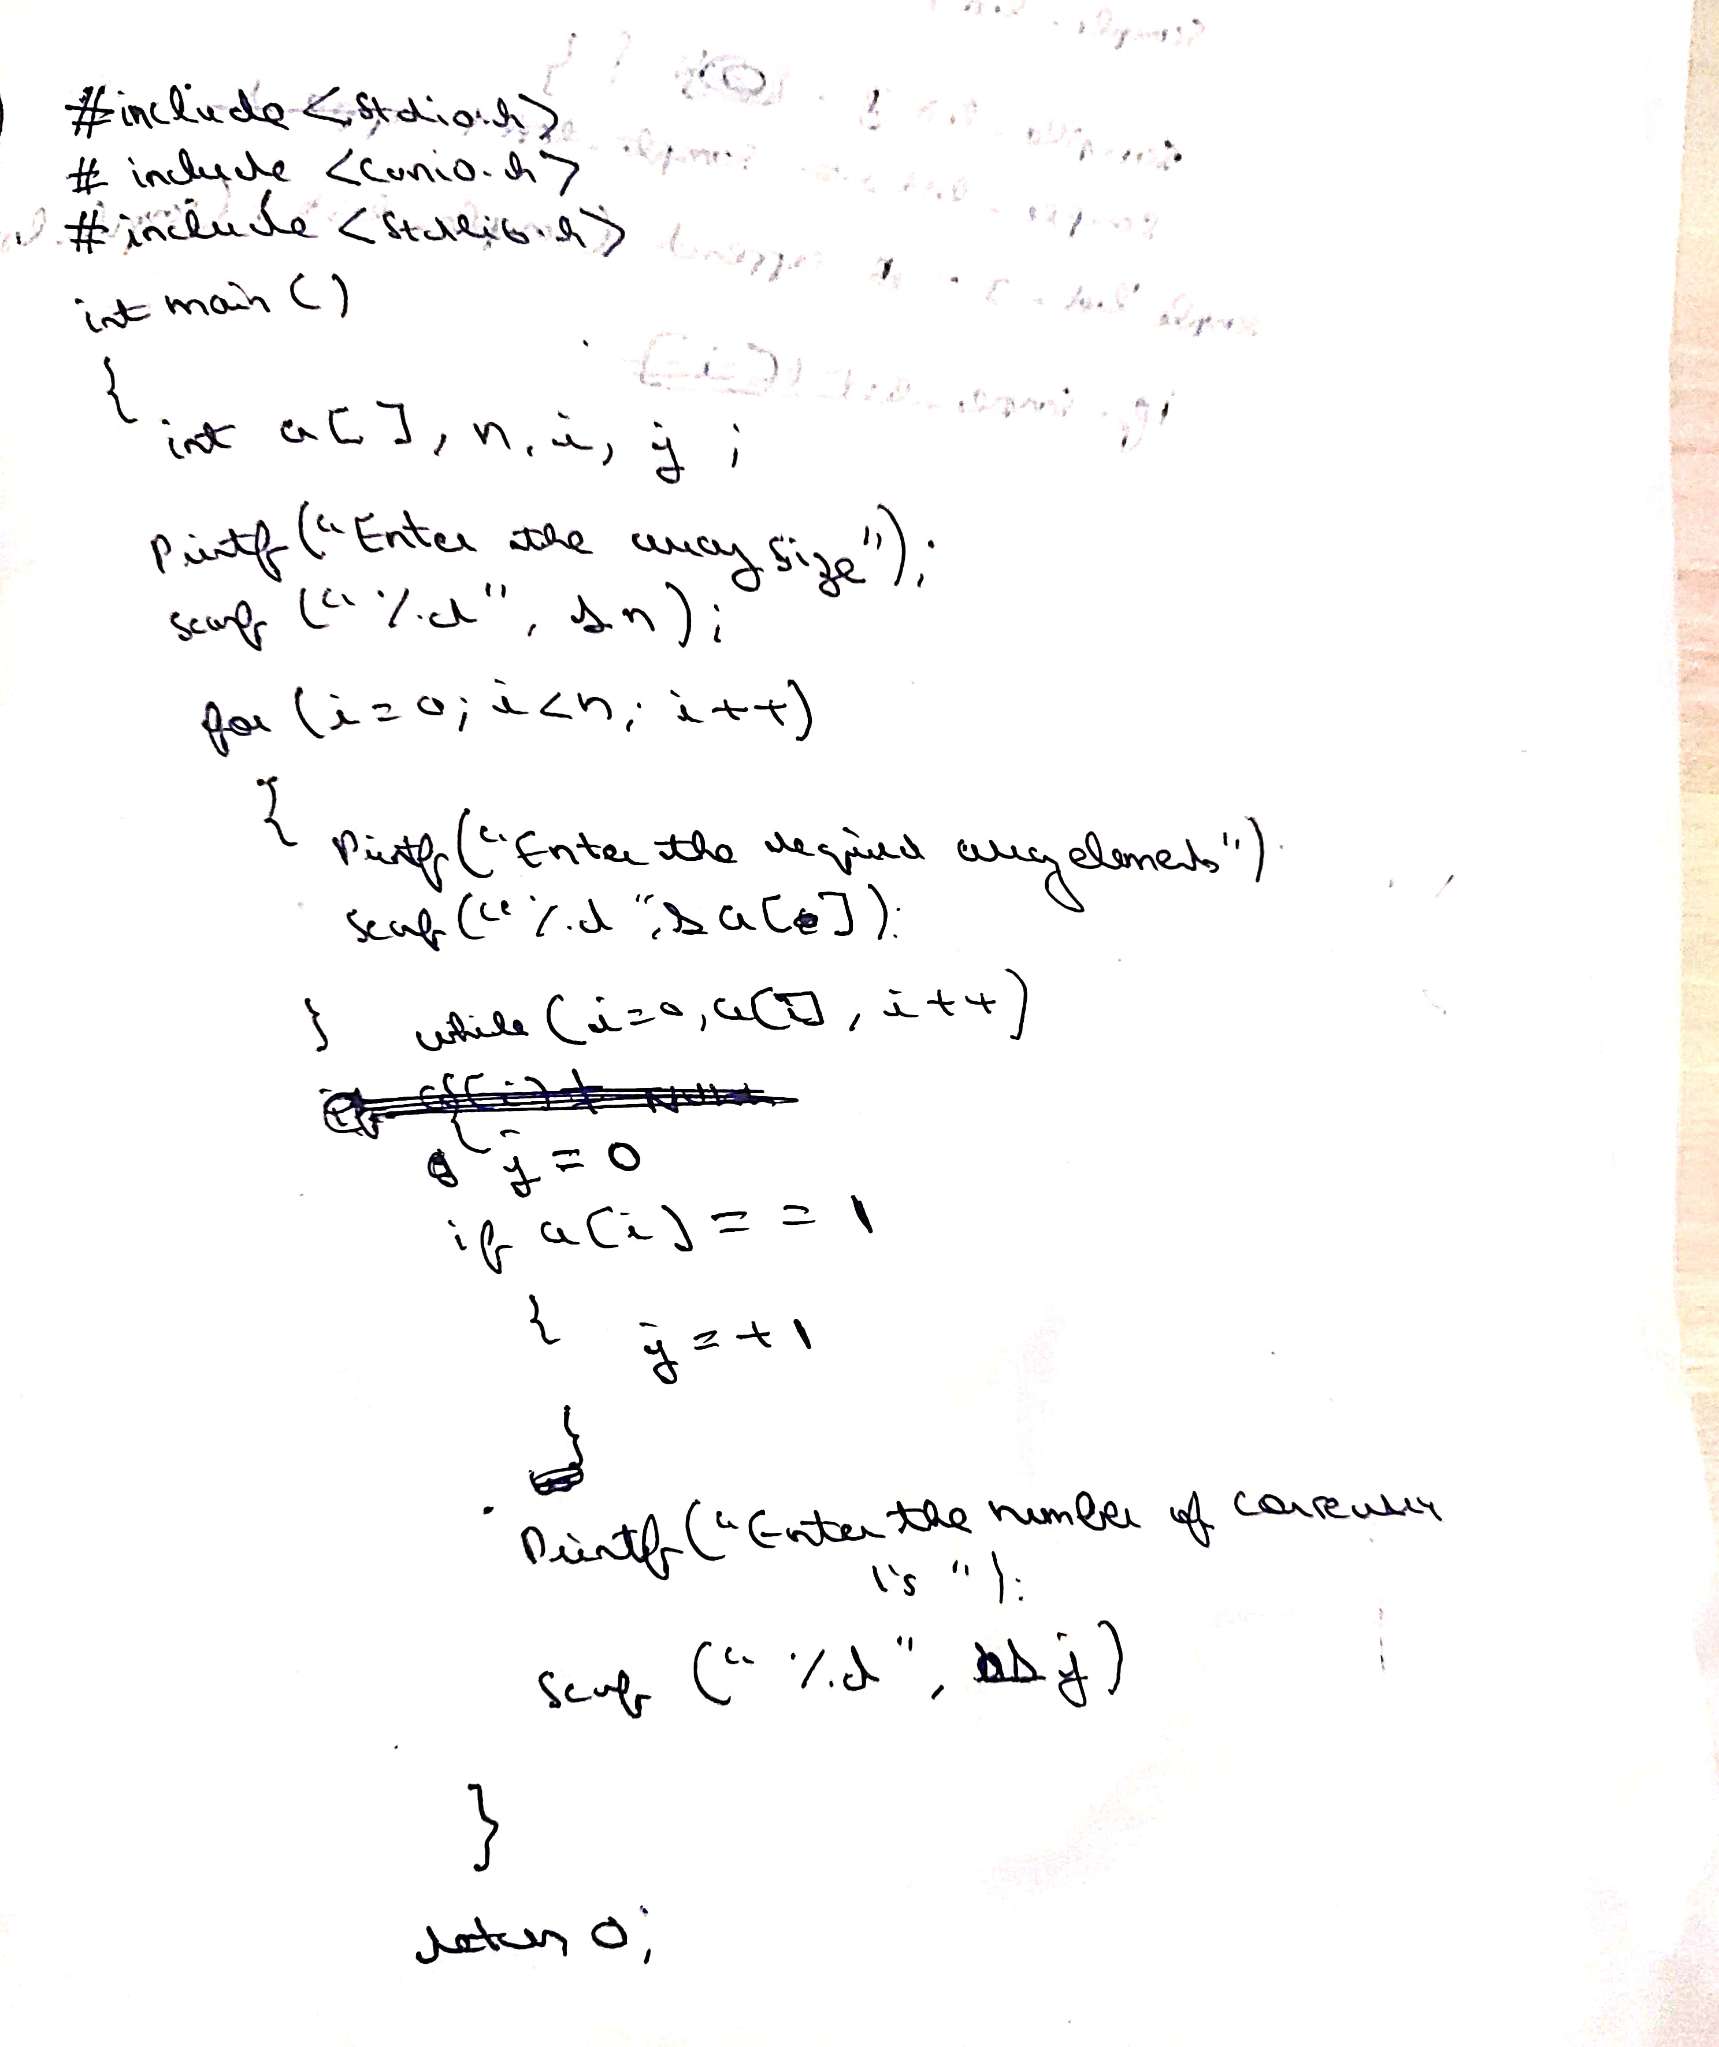 #include <stdio.h>
# include <conio.h>
#include <stdlib.h>
int main ()
{
int a[ ], n, i, j ;
Printf ("Enter the array size");
scanf ("%d", &n);
for (i=0; i<n; i++)
{
Printf ("Enter the required array elements")
scanf ("%d", & a[ ]);
} while (i=0, a[i], i++)
{
j = 0
if a[i] = = 1
{
j = +1
}
Printf ("Enter the number of
1's ");
scanf ("%d", &j)
}
return 0;